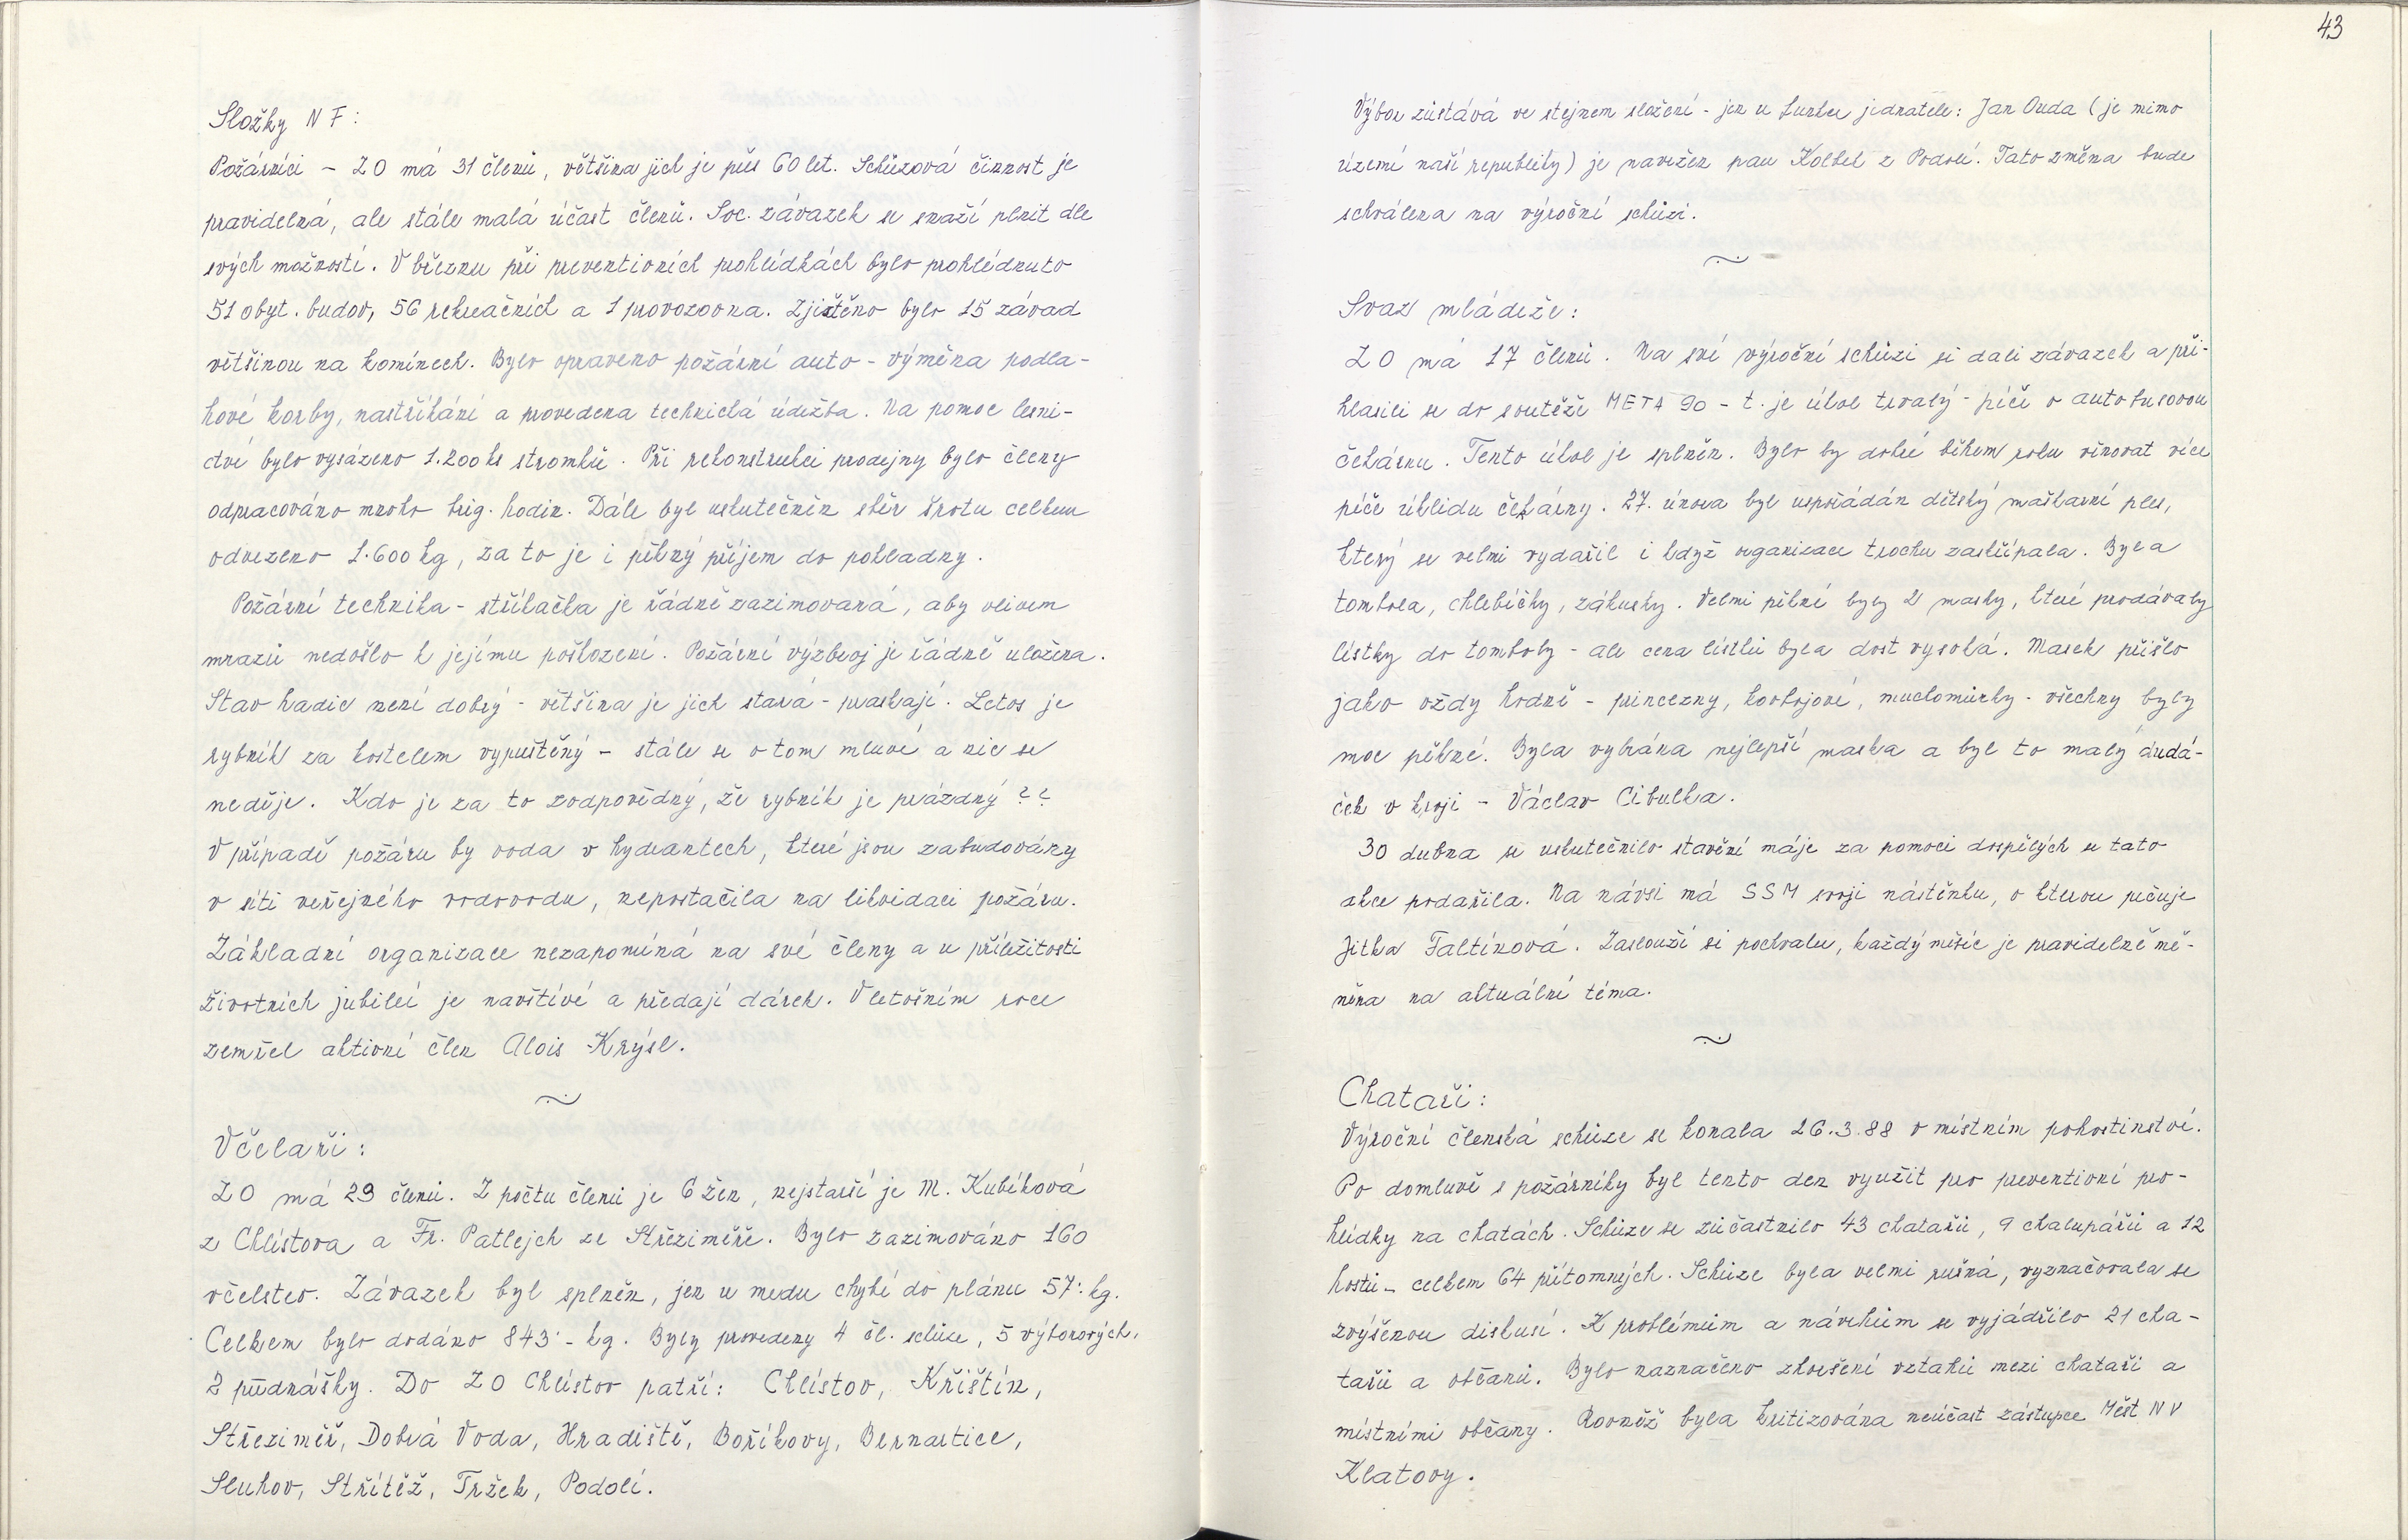 Složky NF:
Požárníci - ZO má 31 členů, většina jich je přes 60 let. Schůzová činnost je
pravidelná, ale stále malá účast členů. Soc. závazek se snaží plnit dle
svých možností. V březnu při preventivních prohlídkách bylo prohlédnuto
51 obyt. budov, 56 rekreačních a 1 provozovna. Zjištěno bylo 15 závad
většinou na komínech. Bylo opraveno požární auto - výměna podla-
hové korby, nastříkání a provedena technická údržba. Na pomoc lesni-
ctví bylo vysázeno 1.200 ks stromků. Při rekonstrukci prodejny bylo členy
odpracováno mnoho brig. hodin. Dále byl uskutečněn sběr šrotu celkem
odvezeno 1.600 kg, za to je i pěkný příjem do pokladny.
Požární technika - stříkačka je řádně zazimovaná, aby vlivem
mrazů nedošlo k jejímu poškození. Požární výzbroj je řádně uložena.
Stav hadic není dobrý - většina je jich stará - praskají. Letos je
rybník za kostelem vypuštěný - stále se o tom mluví a nic se
neděje. Kdo je za to zodpovědný, že rybník je prázdný ??
V případě požáru by voda v hydrantech, které jsou zabudovány
v síti veřejného vodovodu, nepostačila na likvidaci požáru.
Základní organizace nezapomíná na své členy a u příležitosti
životních jubileí je navštíví a předají dárek. V letošním roce
zemřel aktivní člen Alois Krýsl.
Včelaři:
ZO má 29 členů. Z počtu členů je 6 žen, nejstarší je M. Kubíková
z Chlístova a Fr. Patlejch ze Střeziměře. Bylo zazimováno 160
včelstev. Závazek byl splněn, jen u medu chybí do plánu 57: kg.
Celkem bylo dodáno 843·- kg. Byly provedeny 4 čl. schůze, 5 výborových,
2 přednášky. Do ZO Chlístov patří: Chlístov, Křištín,
Střeziměř, Dobrá Voda, Hradiště, Boříkovy, Bernartice,
Sluhov, Střítěž, Tržek, Podolí.
43
Výbor zůstává ve stejnem složení - jen u funkce jednatele: Jan Ouda (je mimo
území naší republiky) je navržen pan Kolbel z Podolí. Tato změna bude
schválena na výroční schůzi.
Svaz mládeže:
ZO má 17 členů. Na své výroční schůzi si dali závazek a při-
hlasili se do soutěže META 90 - t. je úkol trvalý - péči o autobusovou
čekárnu. Tento úkol je splněn. Bylo by dobré během roku věnovat více
péče úklidu čekárny. 27. února byl uspořádán dětský maškarní ples,
který se velmi vydařil i když organizace trochu zaskřípala. Byla
tombola, chlebíčky, zákusky. Velmi pěkné byly 2 masky, které prodávaly
lístky do tomboly - ale cena lístků byla dost vysoká. Masek přišlo
jako vždy hodně - princezny, kovbojové, muchomůrky - všechny byly
moc pěkné. Byla vybrána nejlepší maska a byl to malý dudá-
ček v kroji - Václav Cibulka.
30 dubna se uskutečnilo stavění máje za pomoci dospělých se tato
akce podařila. Na návsi má SSM svoji nástěnku, o kterou pečuje
Jitka Faltínová. Zaslouží si pochvalu, každý měsíc je pravidelně mě-
něna na aktuální téma.
Chataři:
Výroční členská schůze se konala 26.3.88 v místním pohostinství.
Po domluvě s požárníky byl tento den využit pro preventivní pro-
hlídky na chatách. Schůze se zúčastnilo 43 chatařů, 9 chalupářů a 12
hostů - celkem 64 přítomných. Schůze byla velmi rušná, vyznačovala se
zvýšenou diskusí. K problémům a návrhům se vyjádřilo 21 cha-
tařů a občanů. Bylo naznačeno zhoršení vztahů mezi chataři a
místními občany. Rovněž byla kritizována neúčast zástupce Měst NV
Klatovy.